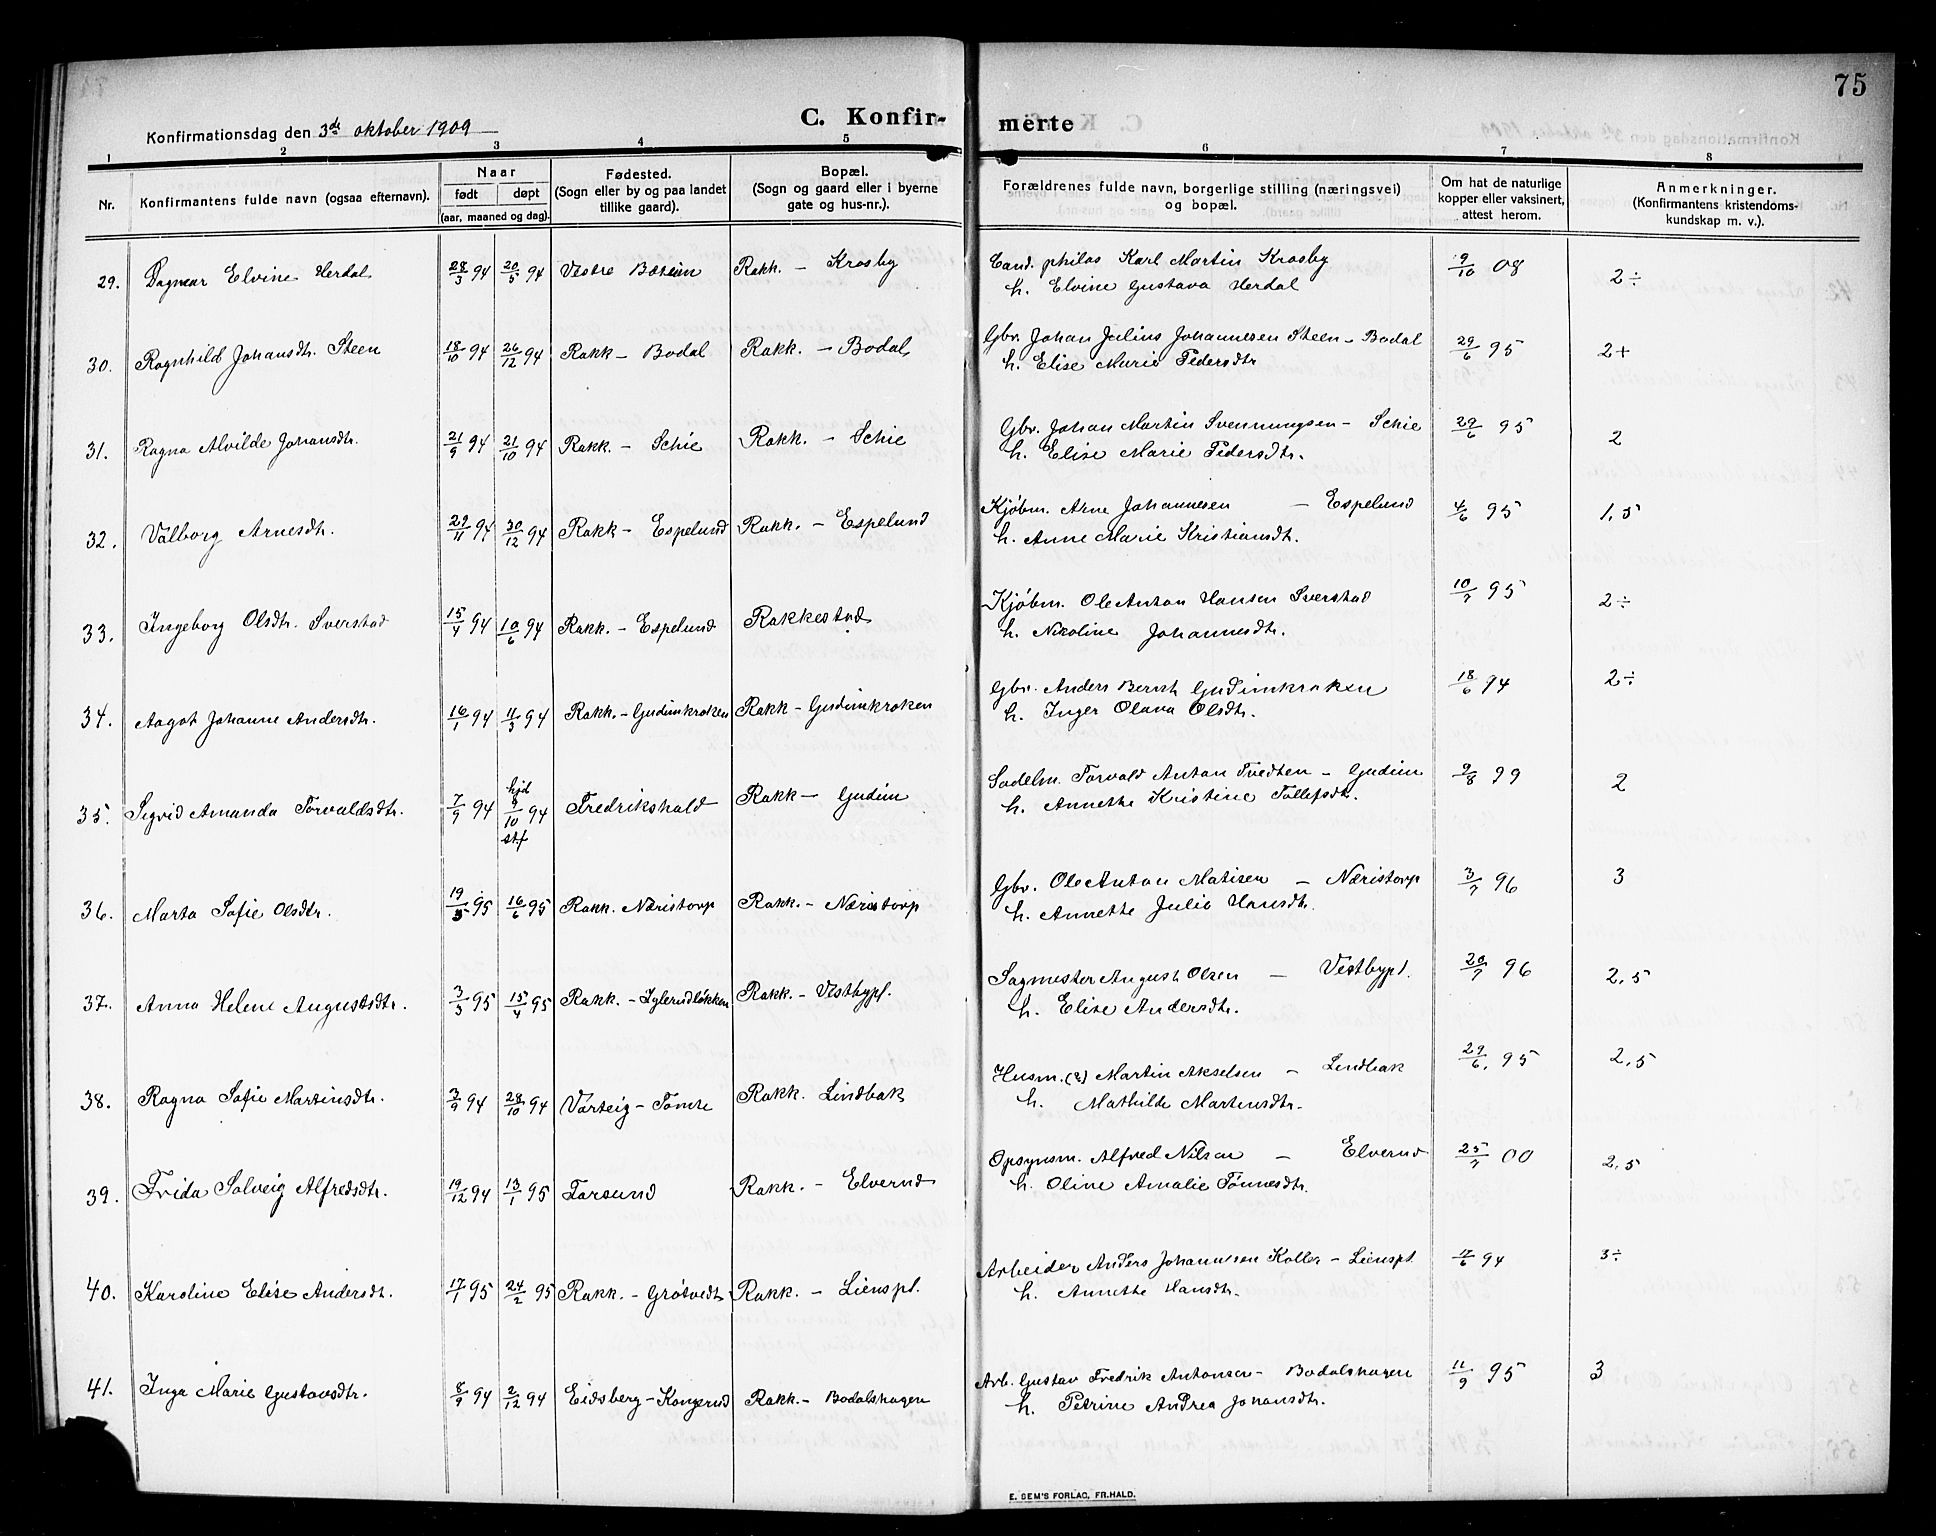 75
C. Konfir-
mërte
Konfirmationsdag den 3de oktober 1909
1 2 3 4 5 6 7 8
Nr. Konfirmantens fulde navn (ogsaa efternavn). Naar født døpt (aar, maaned og dag). Fødested. (Sogn eller by og paa landet tillike gaard). Bopæl. (Sogn og gaard eller i byerne gate og hus-nr.). Forældrenes fulde navn, borgerlige stilling (næringsvei) og bopæl. Om hat de naturlige kopper eller vaksinert, attest herom. Anmerkninger. (Konfirmantens kristendoms-kundskap m. v.).
29. Dagmar Elvine Herdal 28/3 94 20/5 94 Vestre Bærum Rakk. - Krosby Cand. philos Karl Martin Krosby 9/10 08 2÷
h. Elvine Gustava Herdal
30. Ragnhild Johansdtr. Steen 18/10 94 26/12 94 Rakk - Bodal Rakk. - Bodal Gbr. Johan Julius Johannesen Steen - Bodal 29/6 95 2+
h. Elise Marie Pedersdtr
31. Ragna Alvilde Johansdtr. 21/9 94 21/10 94 Rakk. - Schie Rakk. - Schie Gbr. Johan Martin Svenningsen - Schie 29/6 95 2
h. Elise Marie Pedersdtr.
32. Valborg Arnesdtr. 29/11 94 30/12 94 Rakk - Espelund Rakk. - Espelund Kjøbm. Arne Johannesen - Espelund 4/6 95 1,5
h. Anne Marie Kristiansdtr.
33. Ingeborg Olsdtr. Sverstad 15/4 94 10/6 94 Rakk. - Espelund Rakkestad Kjøbm. Ole Anton Hansen Sverstad 10/7 95 2÷
h. Nikoline Johannesdtr.
34. Aagot Johanne Andersdtr. 16/1 94 11/3 94 Rakk. - Gudimkroken Rakk - Gudimkroken Gbr. Anders Bernt Gudimkroken 18/6 94 2÷
h. Inger Olava Olsdtr.
35. Sigrid Amanda Torvaldsdtr. 7/9 94 hjd 9/10 94 stf Fredrikshald Rakk - Gudim Sadelm. Torvald Anton Tvedten - Gudim 9/8 99 2
h. Annette Kristine Tollefsdtr.
36. Marta Sofie Olsdtr. 19/5 95 16/6 95 Rakk. Næristorp Rakk. - Næristorp Gbr. Ole Anton Matisen - Næristorp 3/7 96 3
h. Annette Julie Hansdtr.
37. Anna Helene Augustsdtr. 3/3 95 15/4 95 Rakk. - Iglerudløkken Rakk. - Vestbypl. Sagmester August Olsen - Vestbypl. 20/7 96 2,5
h. Elise Andersdtr.
38. Ragna Sofie Martinsdtr. 3/9 94 28/10 94 Varteig - Tomte Rakk. Lindbak Husm. (?) Martin Akselsen - Lindbak 29/6. 95 2,5
h. Mathilde Martinsdtr.
39. Frida Solveig Alfredsdtr. 19/12 94 13/1 95 Farsund Rakk. - Elverud Opsynsm. Alfred Nilsen - Elverud 25/7 00 2,5
h. Oline Amalie Tønnesdtr.
40. Karoline Elise Andersdtr. 17/1 95 24/2 95 Rakk. - Grøtvedt Rakk. - Lienspl. Arbeider Anders Johannesen Koller - Lienspl 17/6 94 3÷
h. Annette Hansdtr.
41. Inga Marie Gustavsdtr. 8/9 94 2/12 94 Eidsberg - Kongerud Rakk. - Bodalshagen Arb. Gustav Fredrik Antonsen - Bodalshagen 11/9 95 3
h. Petrine Andrea Johansdtr.
E. SEM'S FORLAG, FR.HALD.